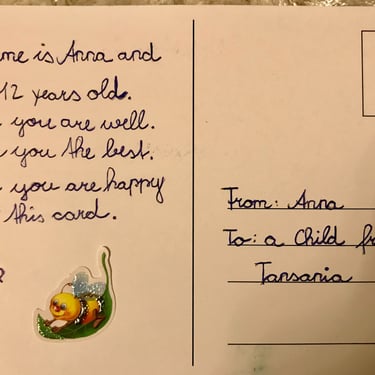 me is Anna and
12 years old.
you are well.
you the best.
you are happy
this card.
?
From: Anna
To: a Child fr
Tansania